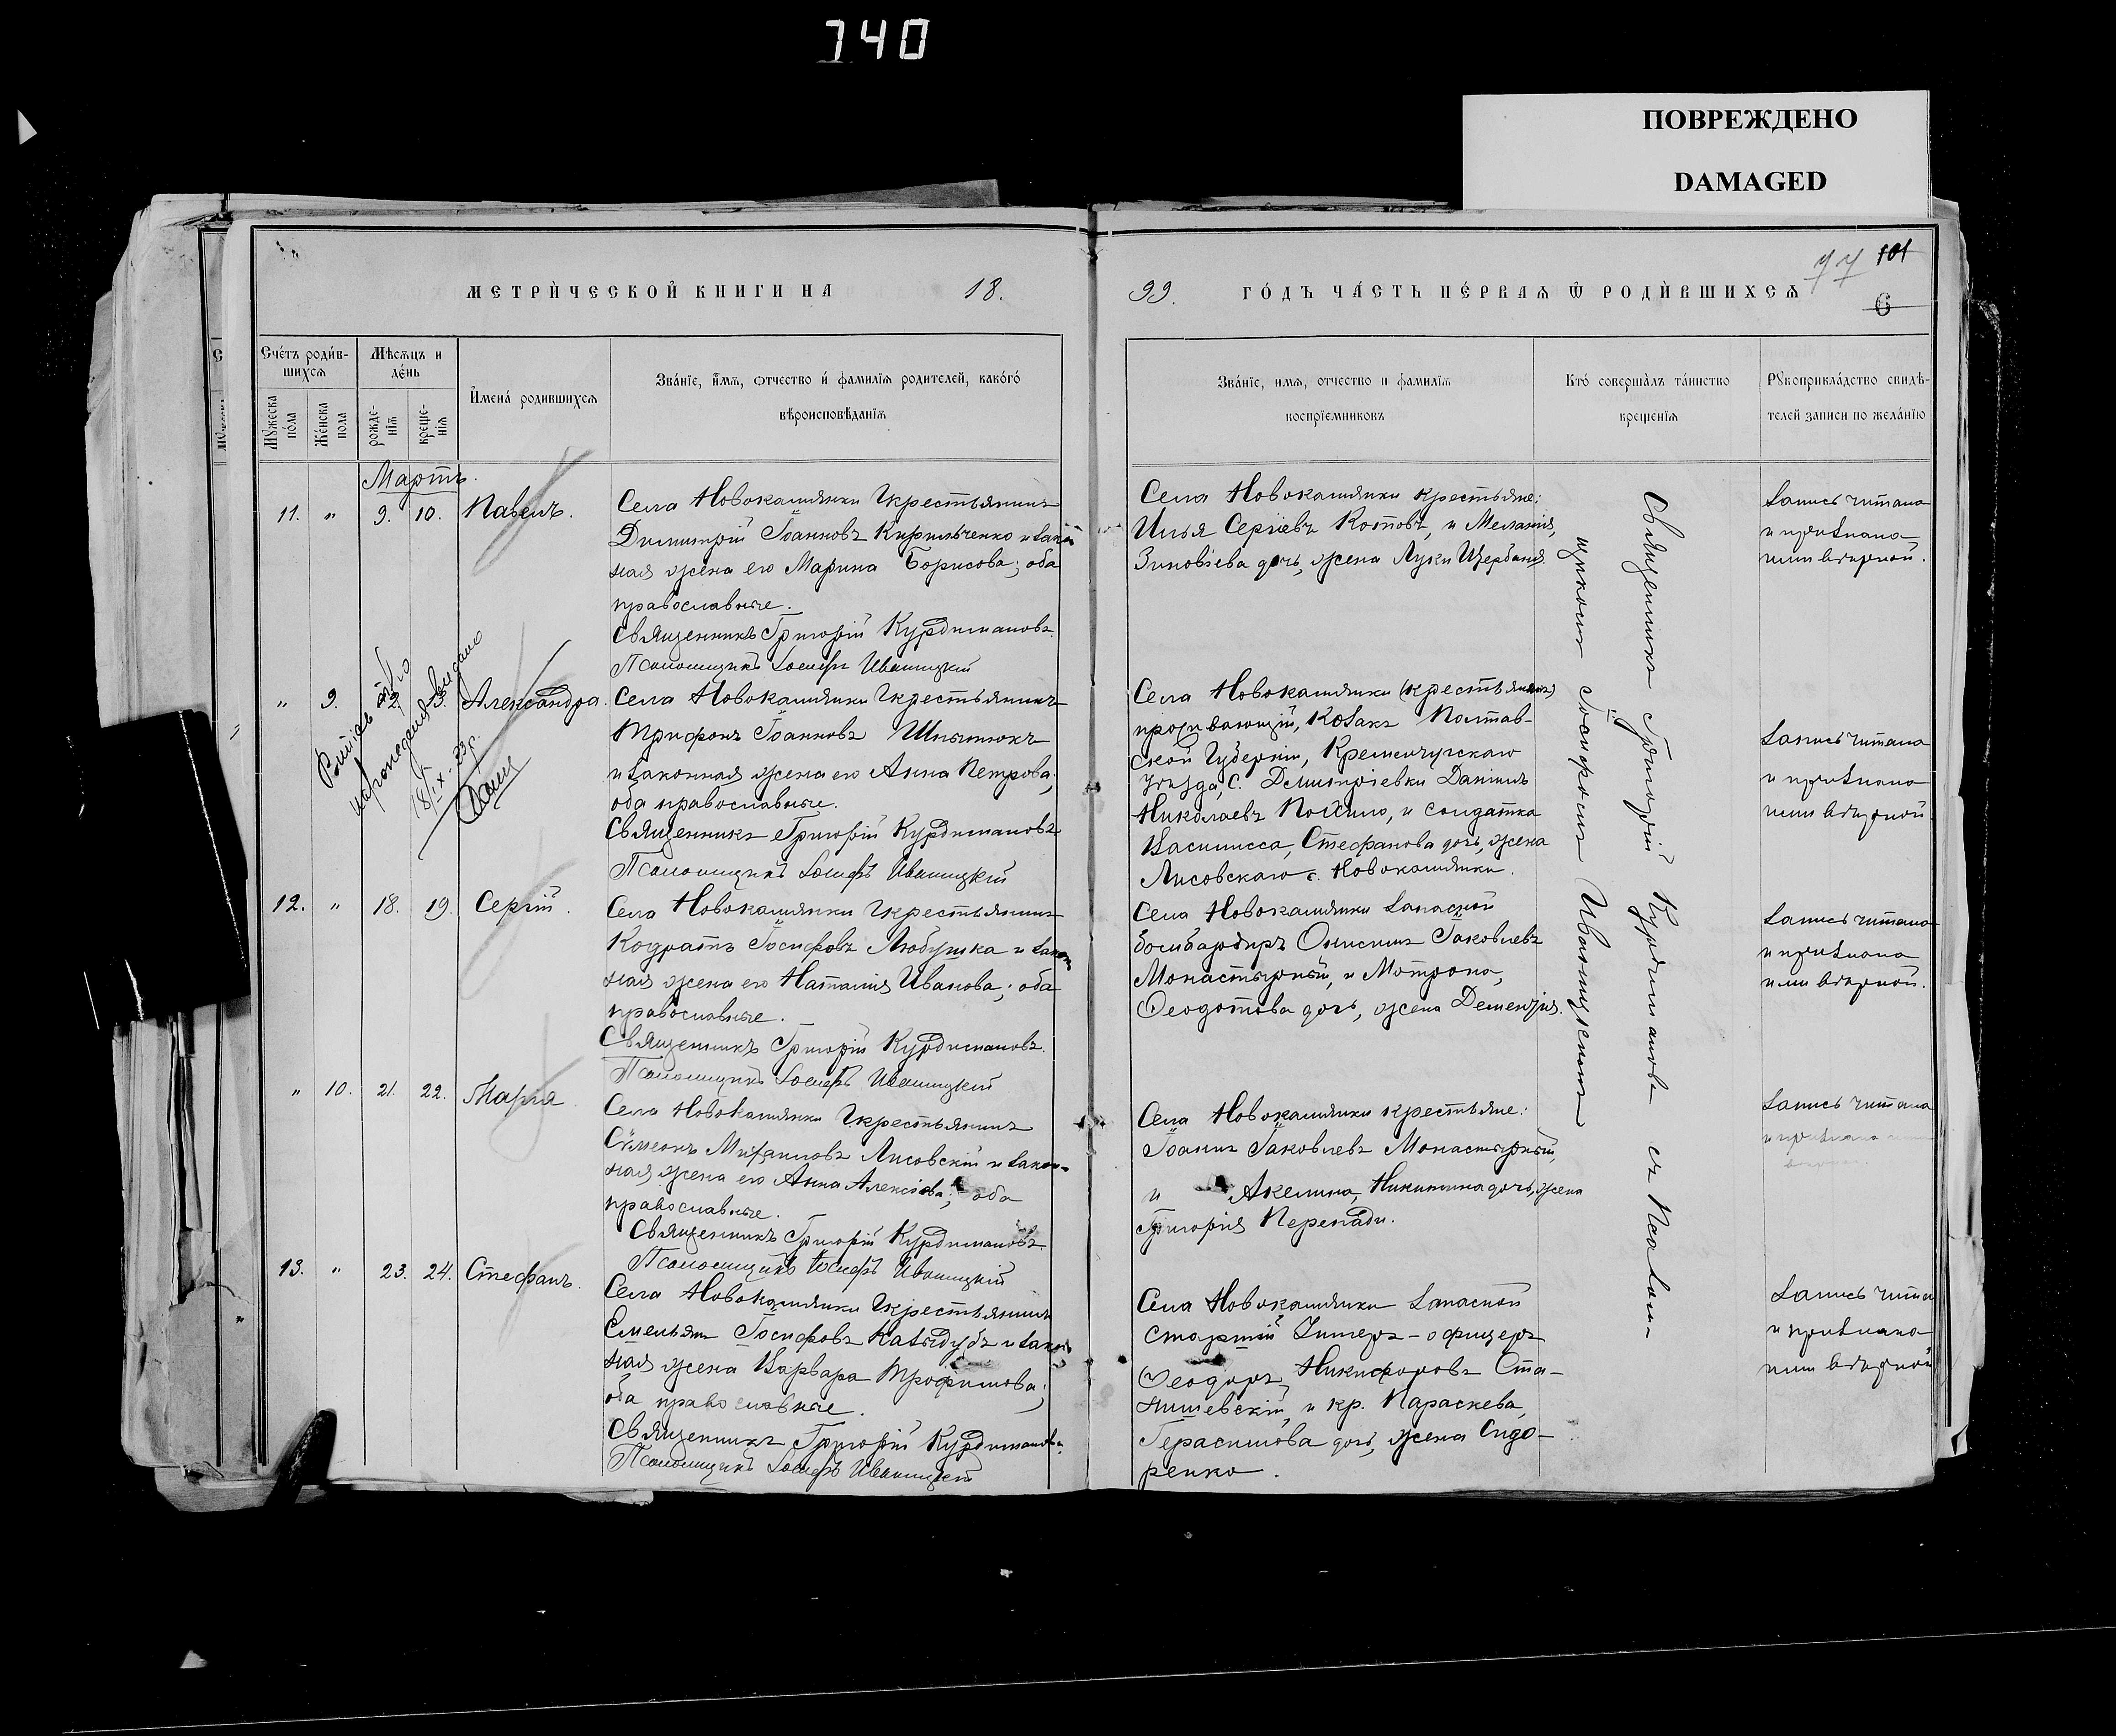 740
ПОВРЕЖДЕНО
DAMAGED
МЕТРИ́ЧЕСКОЙ КНИГИ НА 18.
99. ГО́ДЪ ЧА́СТЬ ПЕ́РВАѦ Ѿ РОДИ́ВШИХСѦ
77 101
6
Сче́тъ роди́в-
шихсѧ
Мѣ́сѧцъ и
де́нь
И҆мена́ родившихсѧ
Зва́нїе, и҆́мѧ, отчество и҆ фамилїѧ родителей, како́гѡ
вѣроисповѣданїѧ
Мꙋжеска
по́ла
Же́нска
пола
рожде-
нїѧ
креще-
нїѧ
Зва́нїе, имѧ, отчество и фамилїѧ
воспрїемниковъ
Кто̀ соверша́лъ та́инство
крещенїѧ
Рꙋкоприкла́дство свидѣ-
телей записи по жела́нїю
Мартъ.
11. " 9. 10. Павелъ.
Села Новокамянки крестьянинъ
Димитрій Іоанновъ Кирильченко и закон
ная жена его Марина Борисова; оба
православные.
Священникъ Григорій Курдимановъ.
Псаломщикъ Іосифъ Иваницкій
Села Новокамянки крестьяне:
Илья Сергіевъ Котовъ, и Меланія,
Зиновіева дочь, жена Луки Щербаня.
Запись читана
и признана
ими вѣрной.
" 9. 2. 3. Александра.
18/IX-23 р.
Села Новокамянки крестьянинъ
Трифонъ Іоанновъ
и законная жена его Анна Петрова;
оба православные.
Священникъ Григорій Курдимановъ
Псаломщикъ Іосифъ Иваницкій
Села Новокамянки (крестьянинъ)
проживающій, козакъ Полтав-
ской Губерніи, Кременчугскаго
уѣзда, с. Дмитріевки Даніилъ
Николаевъ, и солдатка
Василисса, Стефанова дочь, жена
Лисовскаго с. Новокамянки.
Запись читана
и признана
ими вѣрной
12. " 18. 19. Сергій.
Села Новокамянки крестьянинъ
Кодратъ Іосифовъ Любушка и закон
ная жена его Наталія Иванова; оба
православные.
Священникъ Григорій Курдимановъ.
Псаломщикъ Іосифъ Иваницкій
Села Новокамянки запасной
бомбардиръ Онисимъ Іаковлевъ
Монастырный, и Мотрона,
Ѳеодотова дочь, жена
Запись читана
и признана
ими вѣрной.
" 10. 21. 22. Марія
Села Новокамянки крестьянинъ
Сѵмеонъ Михаиловъ Лисовскій и закон-
ная жена его Анна Алексіева; оба
православные.
Священникъ Григорій Курдимановъ.
Псаломщикъ Іосифъ Иваницкій
Села Новокамянки крестьяне:
Іоаннъ Іаковлевъ Монастырный,
и Акелина, Никитина дочь, жена
Григорія Перепади.
Запись читана
и признана
13. " 23. 24. Стефанъ.
Села Новокамянки крестьянинъ
Емельянъ Іосифовъ Казыдубъ и закон
ная жена Варвара Трофимова;
оба православные.
Священникъ Григорій Курдимановъ.
Псаломщикъ Іосифъ Иваницкій
Села Новокамянки запасной
старшій Унтеръ-офицеръ
Ѳеодоръ Никифоровъ Ста-
нишевскій, и кр. Параскева,
Герасимова дочь, жена Сидо-
ренко.
Запись читан
и признана
ими вѣрной
Священникъ Григорій Курдимановъ съ Псалом-
щикомъ Іосифомъ Иваницкимъ